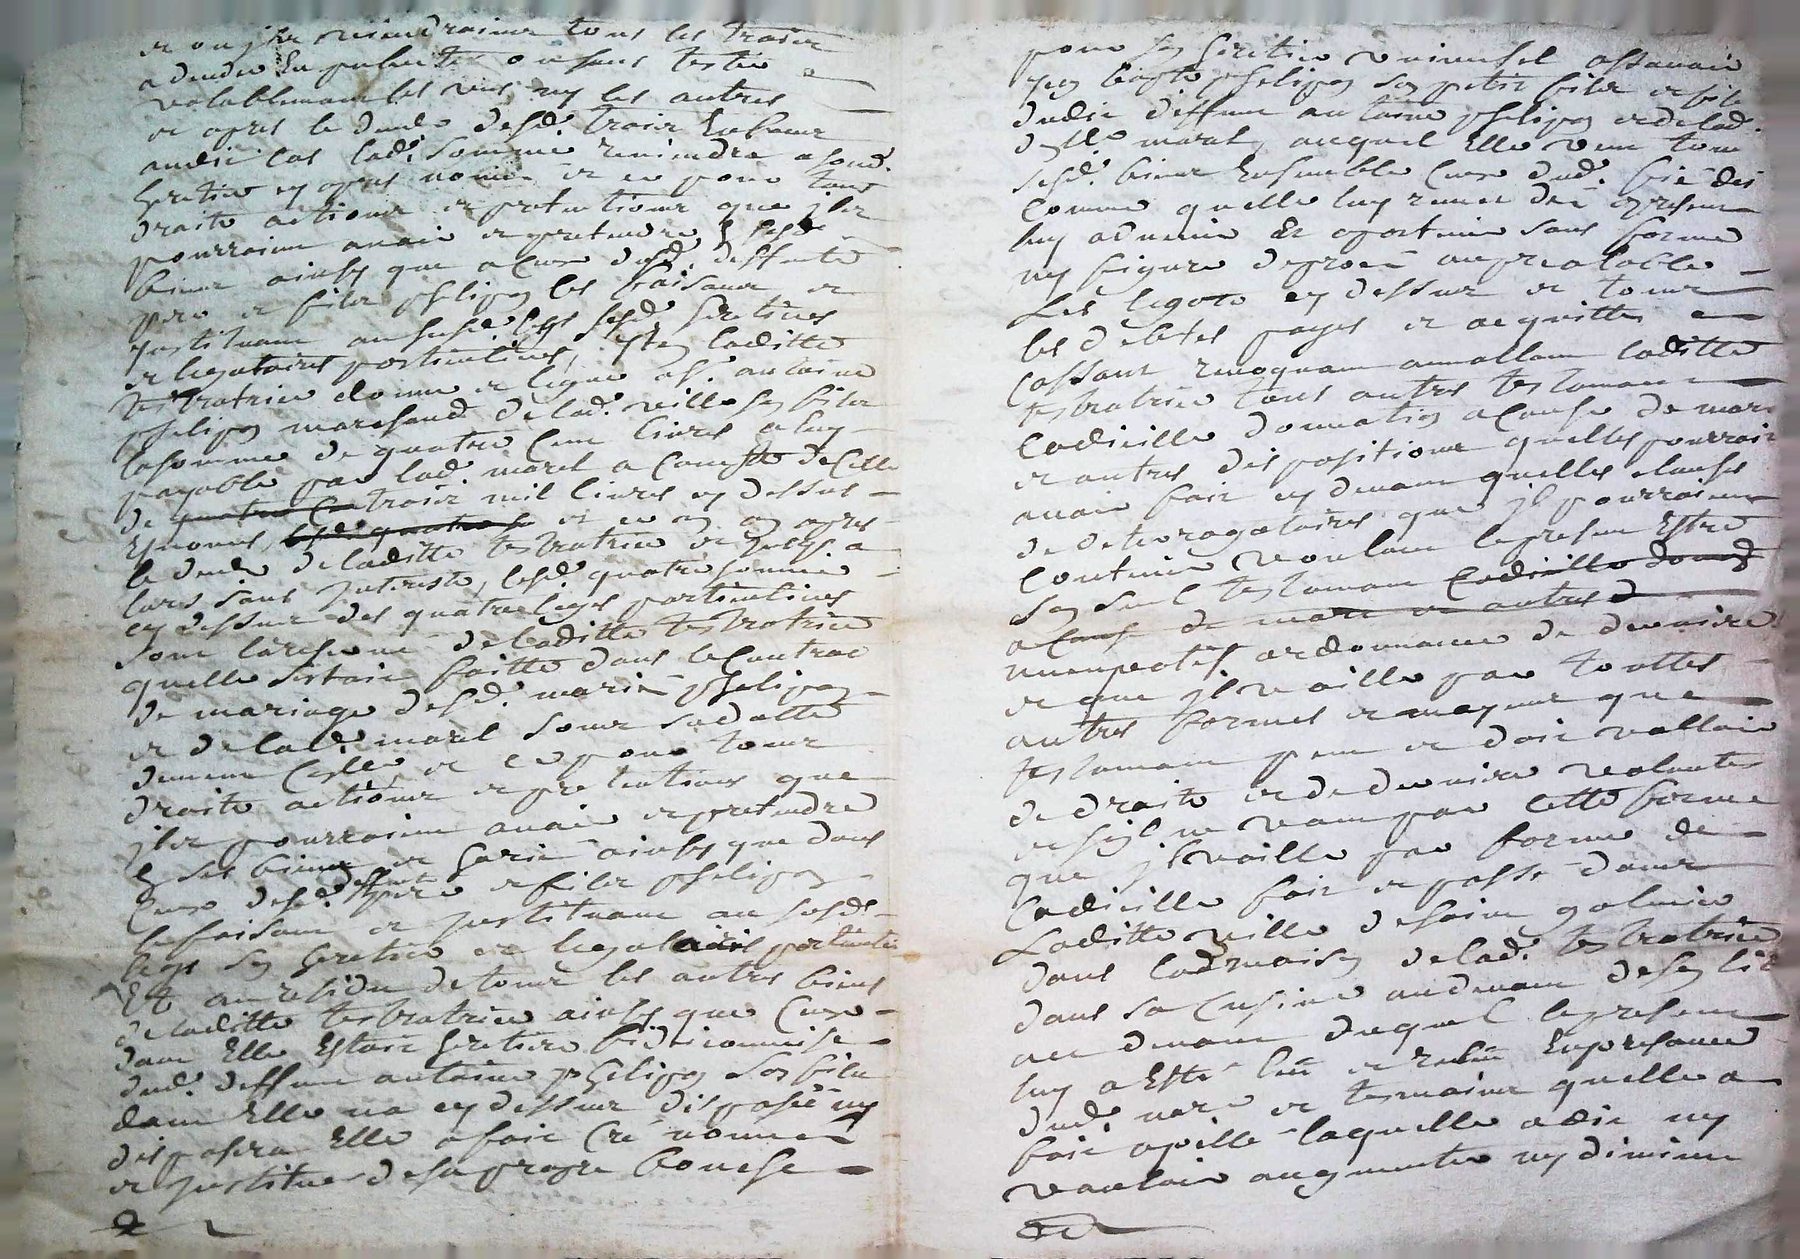 et ou jls viendraient tous les trois
a deceder En puberté ou sans tester
valablement les uns ny les autres
et apres le deces desd. trois Enfants
audit cas lad. somme reviendra a sond.
heritier cy apres nommé et ce pour tous
droits actions et pretentions que jls
pourraient avoir et pretendre E sesd.
biens ainsy que a ceux dud. deffunts
pere et fils phelipon les faisant et
justituant au susd. legs sesd. heritiers
et legataires particuliers, jtem laditte
testatrice donne et legue a sr. antoine
phelipon marchand de lad. ville son fils
la somme de quatre cent livres a luy
payable par lad. morel a compte de celle
de quatre ce trois mil livres cy dessus
Enoncé, lesd. quatre et ce un an apres
le deces de laditte testatrice et jusqs. a
lors sans jnterests, lesd. quatre sommes
cy dessus des quatre legs particuliers
sont la reserve de laditte testatrice
quelle sestoit faitte dans le contrat
de mariage desd. mariés phelipon
et de lad. morel
droits actions et pretentions que
jls pourraient avoir et pretendre
E ses biens et hoirie ainsy que dans
ceux desd. deffunts pere et fils phelipon
le faisant et justituant au susd.
legs son heritier et legataire particulier
Et au residu de tous les autres biens
de laditte testatrice ainsy que ceux
dont Elle Estoit heritiere fideicommise
dud. deffunt antoine phelipon son fils
dont Elle na cy dessus disposé ny
disposera Elle a fait créé nommé
et justitué de sa propre bouche
pour son heritier universel assavoir
phelipon son petit fils et fils
dudit deffunt antoine phelipon et de lad.
dlle. morel, auquel Elle veut tous
sesd. biens Ensemble ceux dud. fié des
comme quelle luy remet des apresent
luy advenir Et apartenir sans forme
ny figure de proces au prealable
Les legats cy dessus et tous
les debtes payes et acquittes
cassant revoquant annullant laditte
testatrice tous autres testamens
codicille donnation a cause de mort
et autres dispositions quelles pourrait
avoir fait cy devant quelles clauses
de detrorogatoires que jl pourraient
contenir voulant le present Estre
son seul testament codicille donnon
a cause de mort et autres d
nuncupatif ordonnance de derniere
et que jl vaille par touttes
autres formes et moyens que
testament peut et doit valloir
de droits et de derniere volontes
et sil ne vaut par cette forme
que jl vaille par forme de
codicille fait et passé dans
Laditte ville de saint galmier
dans la maison de lad. testatrice
dans sa cusine au devant de son lit
au devant duquel le present
luy a Esté leu et releu En presence
dud. nore. et tesmoins quelle a
fait apellé laquelle a dit ny
vouloir augmenter ny diminuer